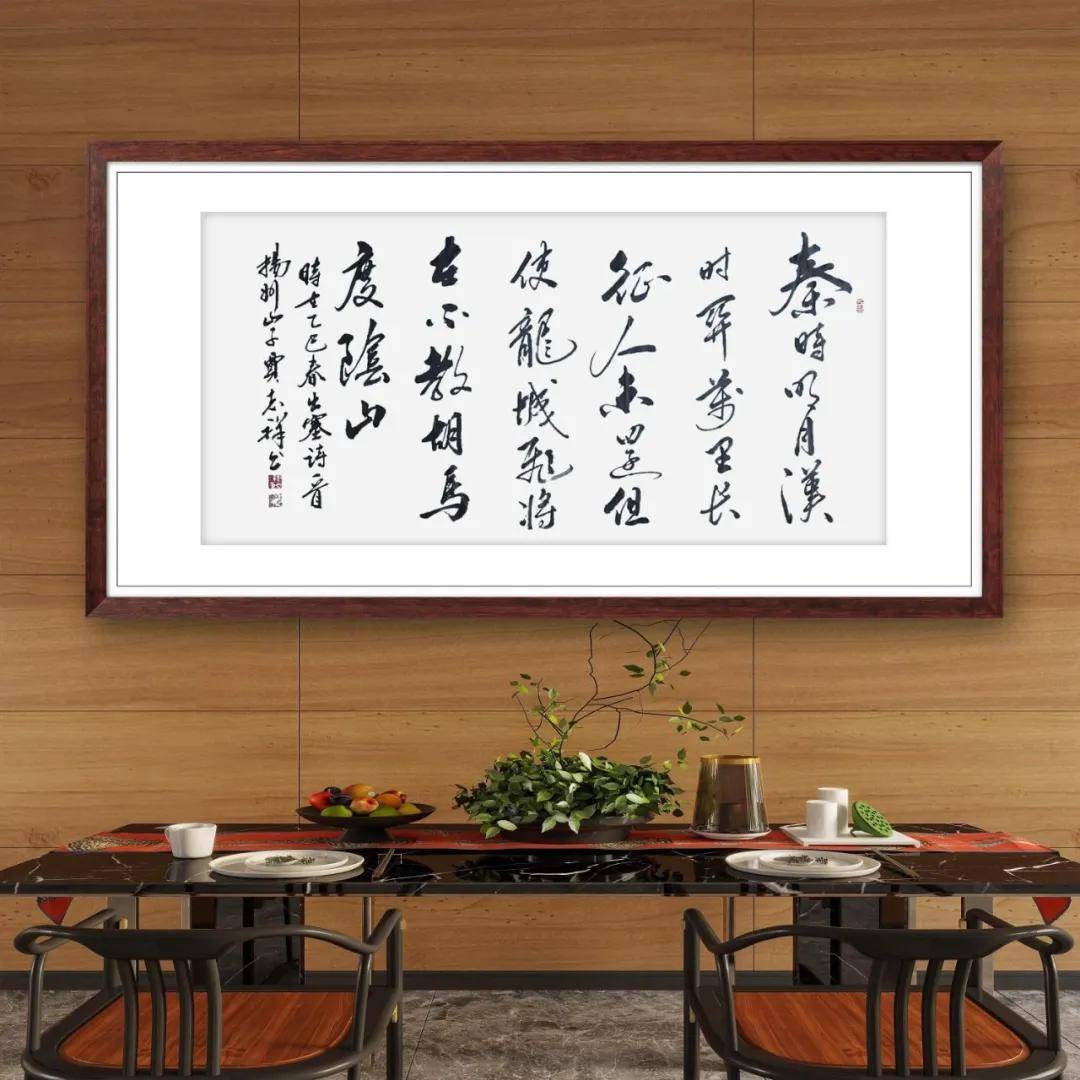 秦時明月漢
时関萬里长
征人未還但
使龍城飛將
在不教胡馬
度陰山
時在乙巳春出塞诗一首
揚州山子賈志祥书